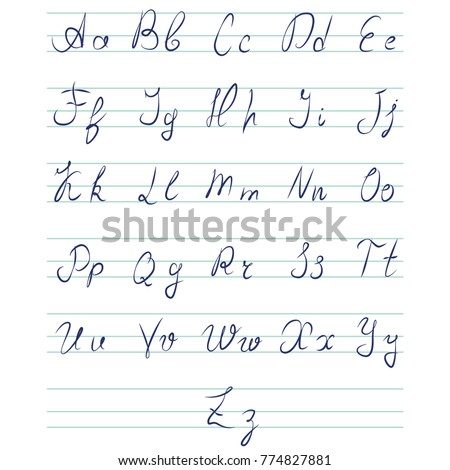 Aa Bb Cc Dd Ee
Ff Gg Hh Ii Jj
Kk Ll Mm Nn Oo
Pp Qq Rr Ss Tt
Uu Vv Ww Xx Yy
Zz
shutterstock
IMAGE ID: 774827881
www.shutterstock.com